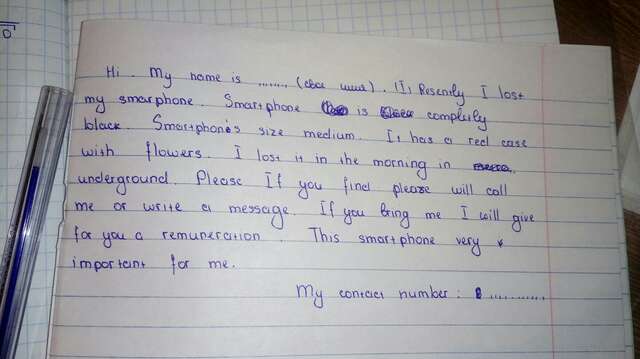 Hi. My name is ........ (свое имя). Resently I lost
my smarphone. Smartphone is complitly
black. Smartphone's size medium. It has a red case
with flowers. I lost it in the morning in
underground. Please If you find please will call
me or write a message. If you bring me I will give
for you a remuneration. This smartphone very
important for me.
My contact number: 8 ............